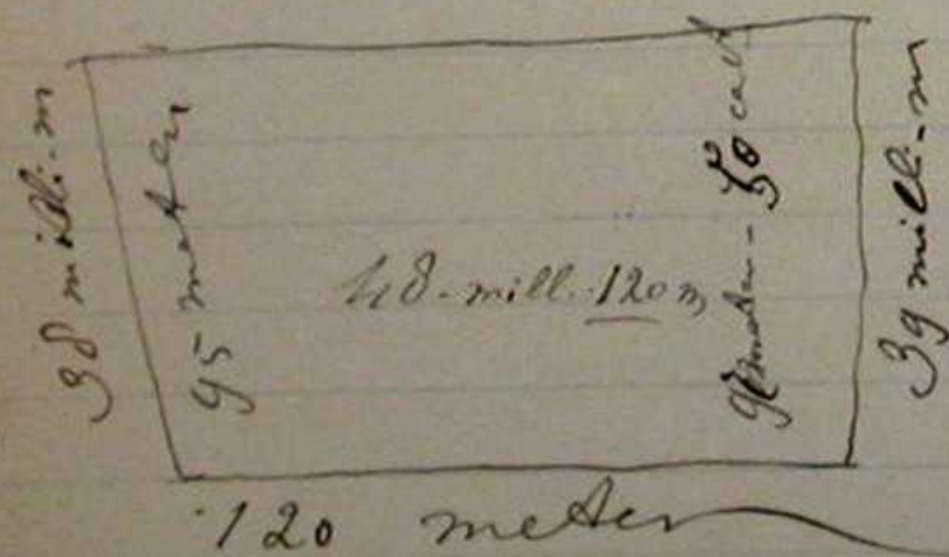 38 milli-m
95 meter
48-mill. 120 m
97 meter - 50 cent
39 milli-m
120 meter